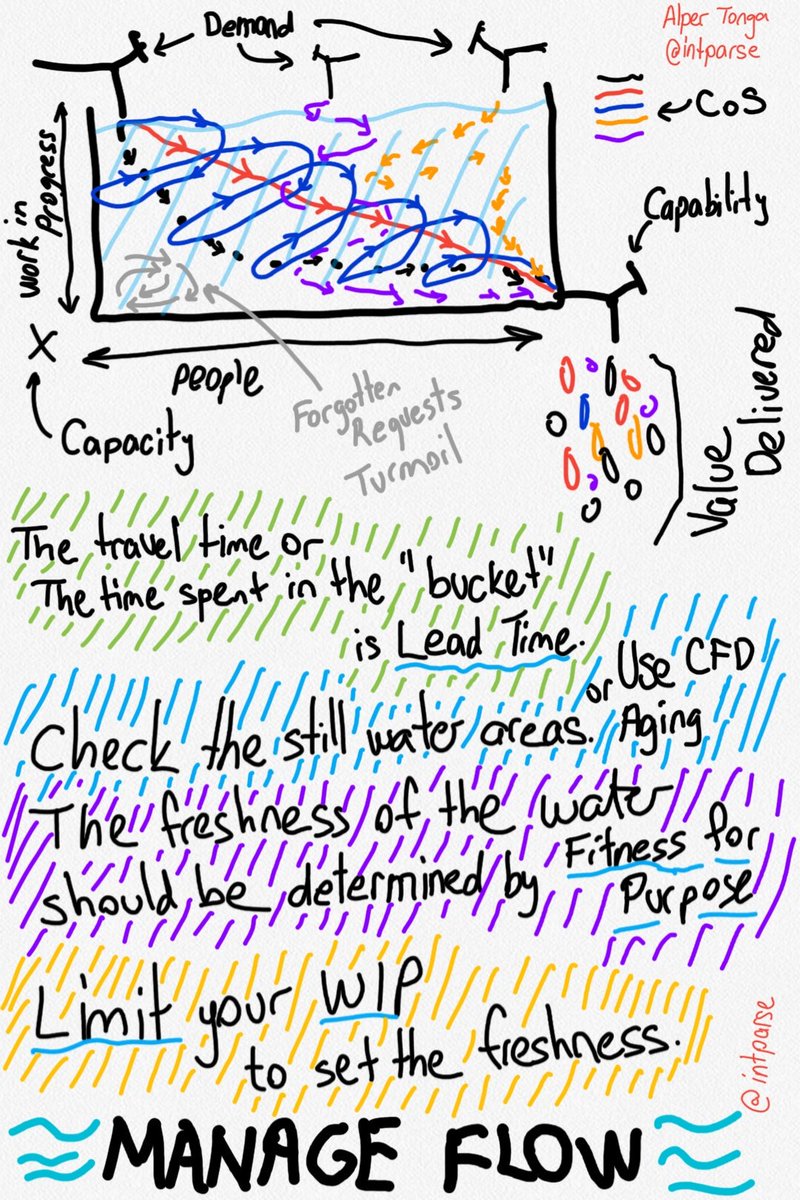 Demand
Alper Tonga
@intparse
CoS
Capability
work in
Progress
X
People
Capacity
Forgotten
Requests
Turmoil
Value
Delivered
The travel time or
The time spent in the "bucket"
is Lead Time.
Check the still water areas.
or Use CFD
Aging
The freshness of the water
should be determined by Fitness for
Purpose
Limit your WIP
to set the freshness.
@intparse
MANAGE FLOW